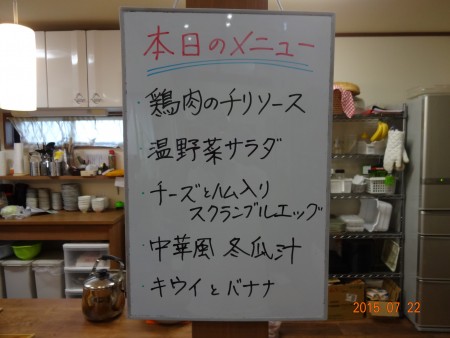 本日のメニュー
・鶏肉のチリソース
・温野菜サラダ
・チーズとハム入り
スクランブルエッグ
・中華風 冬瓜汁
・キウイとバナナ
2015 07 22